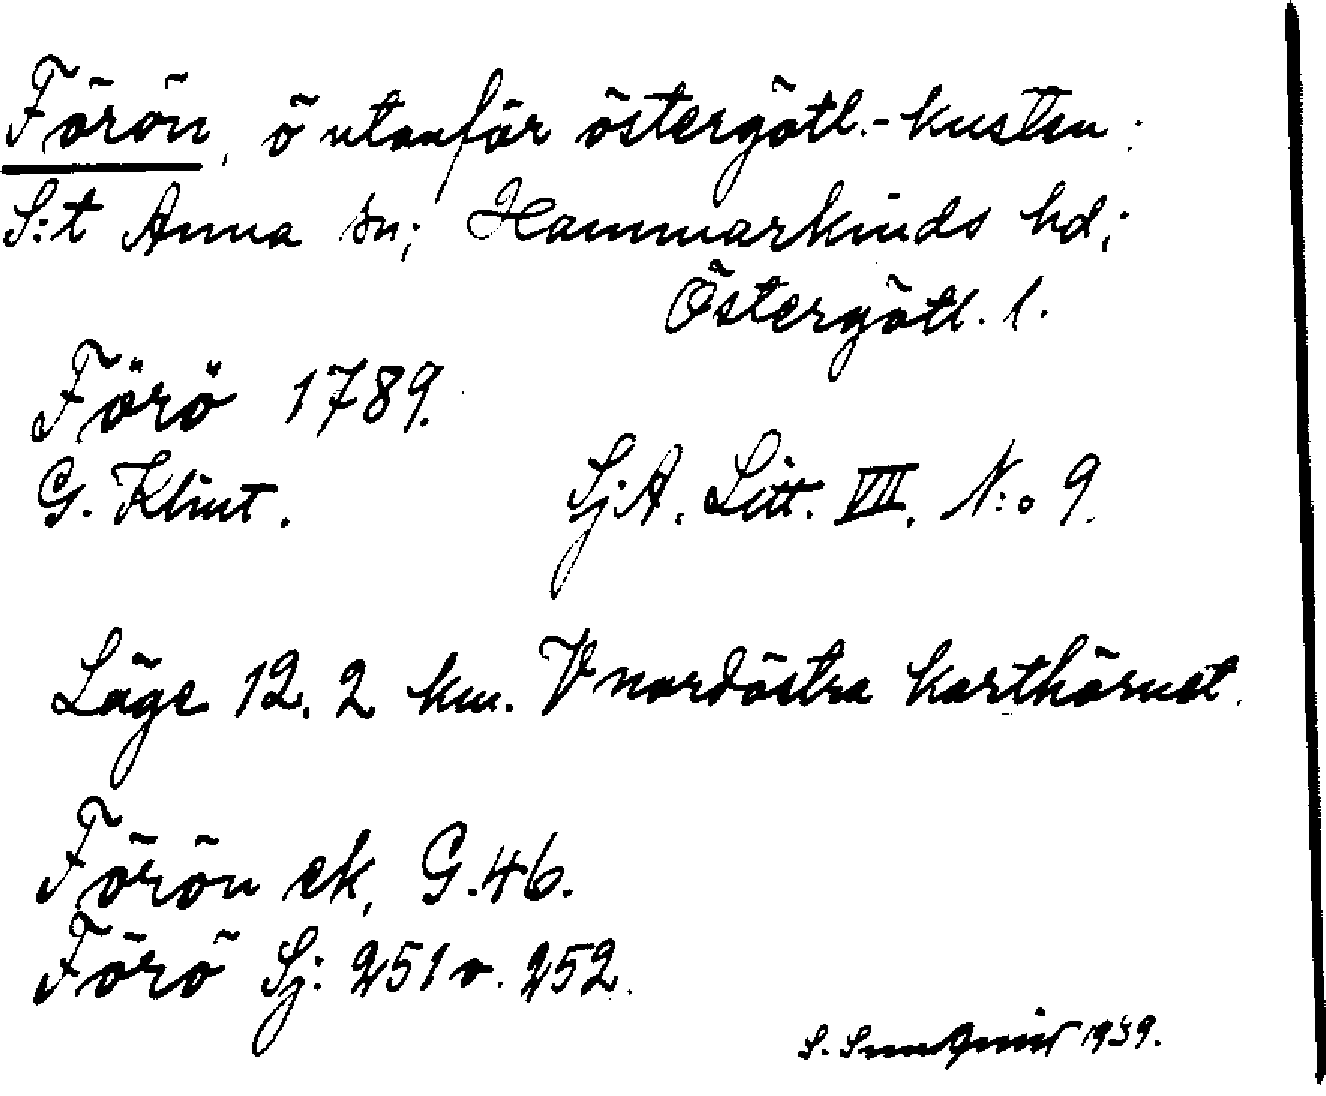 Förön, ö utanför östergötl.-kusten;
S:t Anna sn; Hammarkinds hd;
Östergötl. l.
Förö 1789.
G. Klint. Sj.A. Litt. VII. N:o 9.
Läge 12.2 km. V nordöstra karthörnet.
Förön ek. G.46.
Förö Sj: 251 o. 252.
S. 1939.